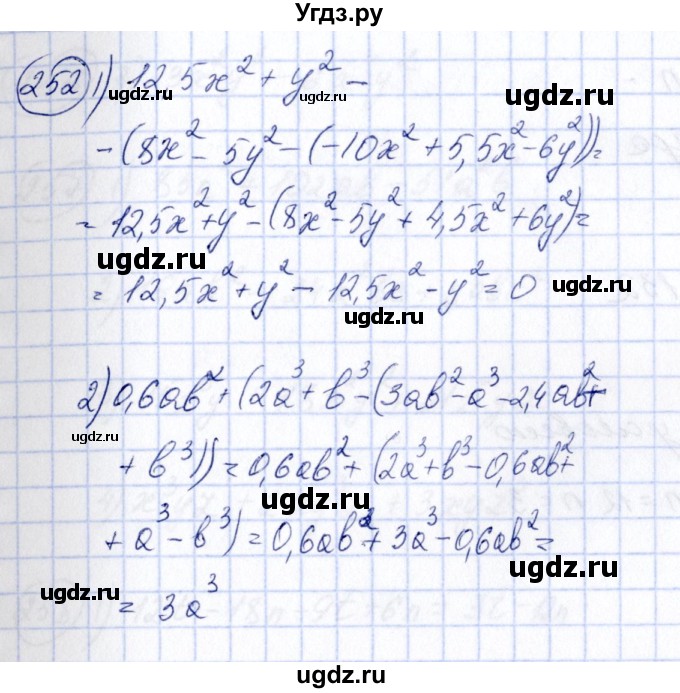 Угдз.ру
252 1) 12,5x² + y² −
− (8x² − 5y² − (−10x² + 5,5x² − 6y²)) =
= 12,5x² + y² − (8x² − 5y² + 4,5x² + 6y²) =
= 12,5x² + y² − 12,5x² − y² = 0
2) 0,6ab² + (2a³ + b³ − (3ab² − a³ − 2,4ab² +
+ b³)) = 0,6ab² + (2a³ + b³ − 0,6ab² +
+ a³ − b³) = 0,6ab² + 3a³ − 0,6ab² =
= 3a³
ugdz.ru
ugdz.ru
ugdz.ru
ugdz.ru
ugdz.ru
ugdz.ru
ugdz.ru
ugdz.ru
ugdz.ru
ugdz.ru
ugdz.ru
ugdz.ru